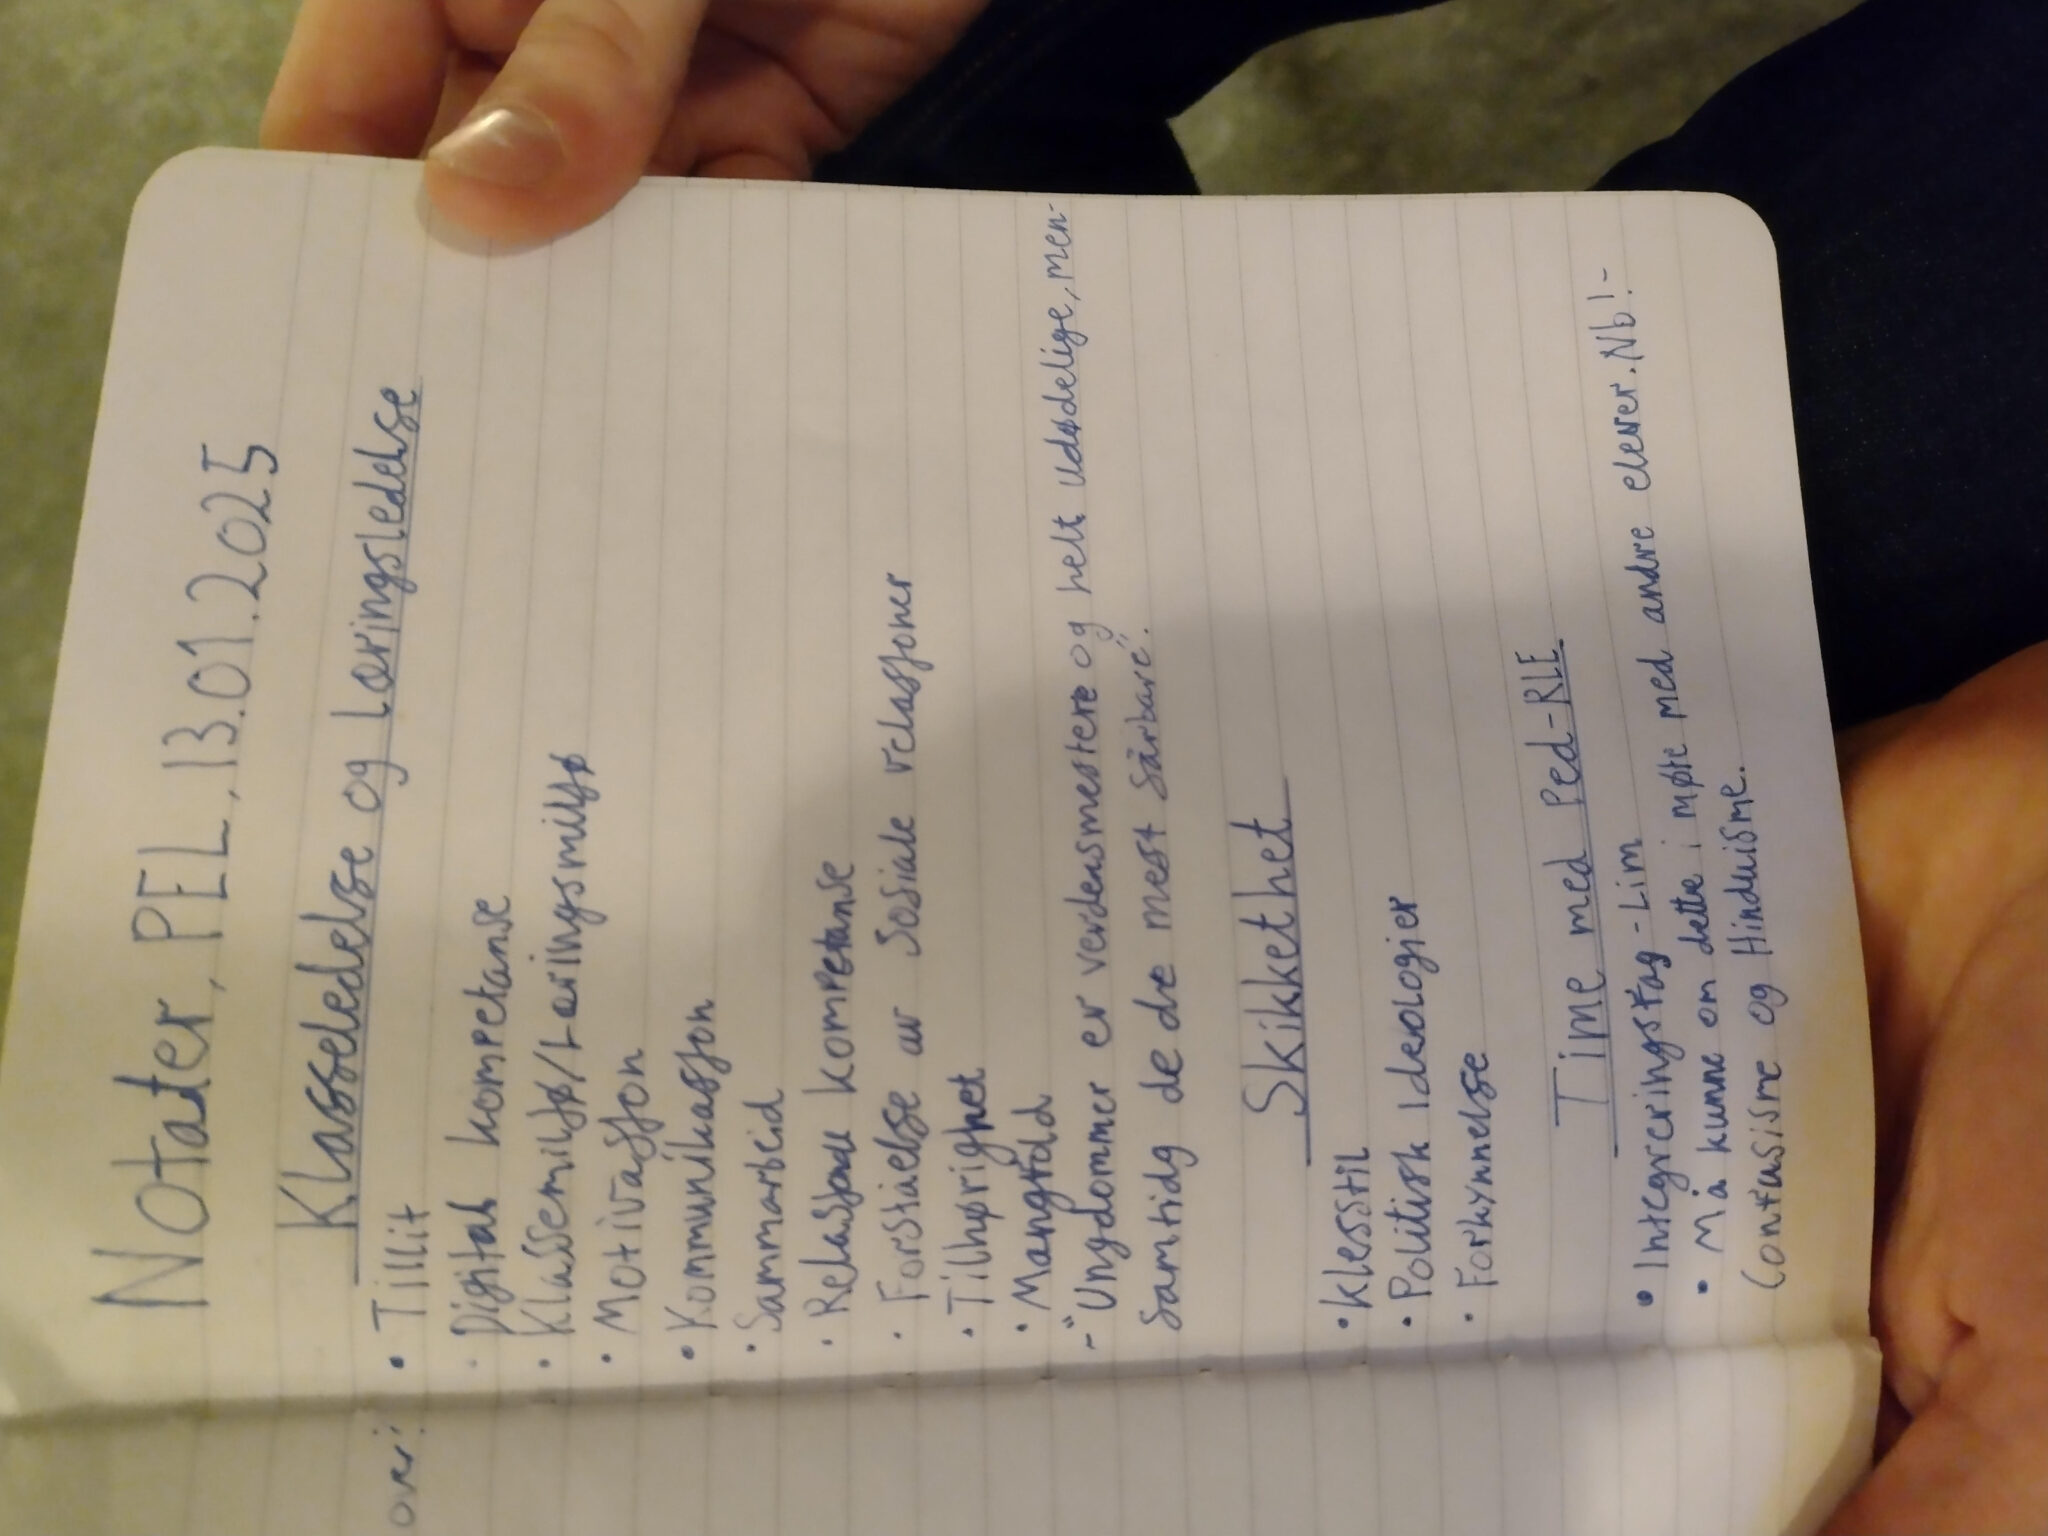 Notater, PEL, 13.01.2025
Klasseledelse og Læringsledelse
• Tillit
• Digital kompetanse
• Klassemiljø/Læringsmiljø
• Motivasjon
• Kommunikasjon
• Sammarbeid
• Relasjonell kompetanse
• Forståelse av Sosiale relasjoner
• Tilhørighet
• Mangfold
-"Ungdommer er verdensmestere og helt udødelige, men-
samtidig de dre mest sårbare".
Skikkethet
• Klesstil
• Politisk Ideologier
• Forkynnelse
Time med Ped-RLE
• Integreringsfag -Lim
• Må kunne om dette i møte med andre elever. Nb!-
Confusisme og Hinduisme.
over: